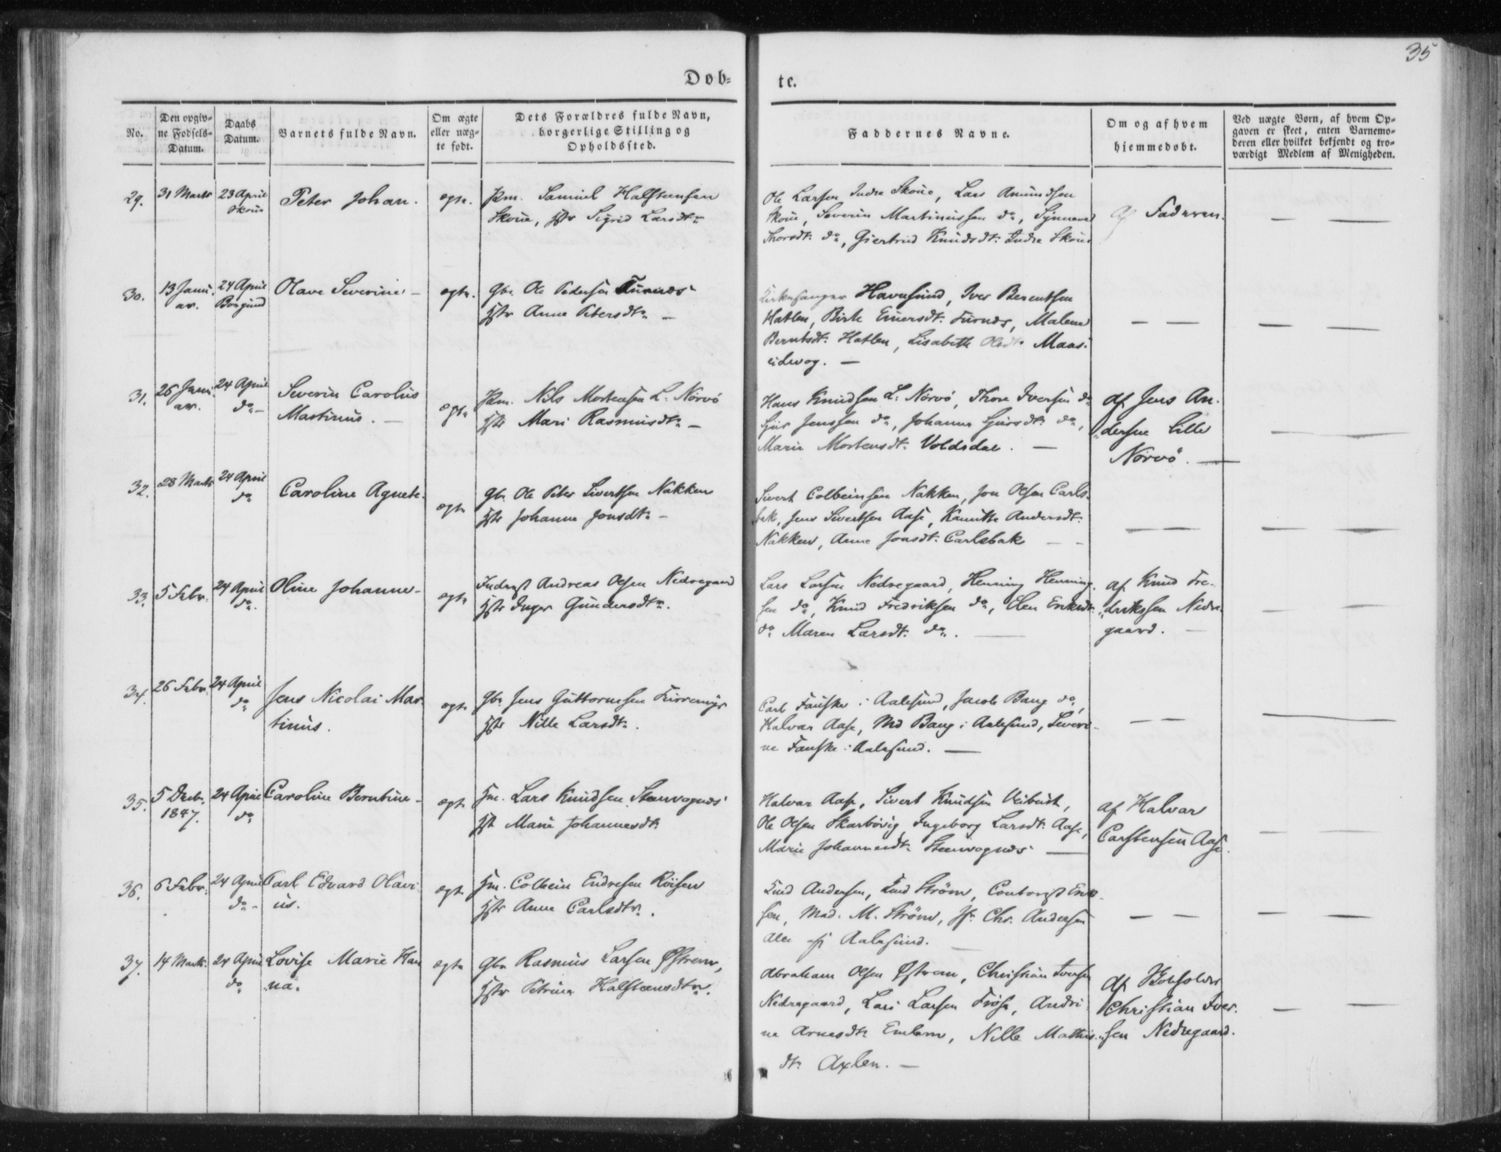 35
Døb-
te.
No.
Den opgiv-
ne Fødsels-
Datum.
Daabs
Datum.
Barnets fulde Navn.
Om ægte
eller uæg-
te født.
Dets Forældres fulde Navn,
borgerlige Stilling og
Opholdssted.
Faddernes Navne.
Om og af hvem
hjemmedøbt.
Ved uægte Børn, af hvem Op-
gaven er skeet, enten Barnemo-
deren eller hvilket bekjendt og tro-
værdigt Medlem af Menigheden.
29.
31 Marts
23 April
Skoue
Peter Johan.
egte.
Samuel Halsteensen
Skoue, Sigrid Larsdtr
Ole Larsen Indre Skoue, Lars Amundsen
Skoue, Severin Martinussen do, Synneve
Thorsdt: do, Giertrud Knudsdt: Indre Skoue
af Faderen.
30.
13 Janu-
ar.
24 April
Borgund
Olave Severine -
egte.
Gbr. Ole Pedersen Furnæs
Hstr Anne Petersdtr -
Kirkesanger Havnsund, Iver Berentsen
Hatlen, Birte Einersdt: Furnæs, Malene
Berntsdt: Hatlen, Lisabeth Olsdt: Maas-
eidvog. -
31.
26 Janu-
ar.
24 April
do -
Severin Carolus
Martinus. -
egte
Nils Mortensen L: Norvø
Hstr Mari Rasmusdtr -
Hans Knudsen L: Norvø, Thore Iversen do
Giør Jenssen do, Johanne Giørsdt: do,
Marie Mortensdt: Voldsdal. -
af Jens An-
dersen Lille
Norvø. -
32.
28 Marts
24 April
do
Caroline Agnete.
egte
Gbr. Ole Peter Sivertsen Nakken
Hstr Johanne Jonsdtr -
Sivert Colbeinsen Nakken, Jon Olsen Carls-
bak, Jens Sivertsen Aase, Kanutte Andersdt:
Nakken, Anne Jonsdt: Carlsbak - -
33.
5 Febr.
24 April
do.
Oline Johanne -
egte
Indrst Andreas Olsen Nedregaard
Hstr Inger Gundersdtr.
Lars Larsen Nedregaard, Henning Henning-
sen do, Knud Fredriksen do, Elen Eriksdt:
do Maren Larsdt: do. -
af Knud Fre-
deriksen Nedre-
gaard. -
34.
26 Febr.
24 April
do
Jens Nicolai Mar-
tinus.
egte
Gbr. Jens Guttormsen
Hstr Nille Larsdtr.
Carl Fauske i Aalesund, Jacob Bang do,
Halvar Aase, Md Bang i Aalesund, Severi-
ne Fauske i Aalesund. -
35.
5 Decb.
1847.
24 April
do
Caroline Berntine -
egte
Hm. Lars Knudsen Steenvognæs
Hst Marie Johannesdt:
Halvar Aase, Sivert Knudsen
Ole Olsen Skarbøvig, Ingeborg Larsdt: Aase,
Marie Johannesdt: Steenvognæs -
af Halvar
Carstensen Aase.
36.
6 Febr.
24 April
do -
Carl Edvard Olavi-
us.
egte
Hm. Colbein Endresen Røisen
Hstr Anne Carlsdtr.
Andersen, Strøm, Erik-
sen, Mad. M. Strøm, Jfr. Chr. Andersen
Alle af Aalesund. -
37.
14 Marts
24 April
do
Lovise Marie Han-
na.
egte
Gbr Rasmus Larsen Østrem,
Hstr Petrine Halsteensdtr.
Abraham Olsen Østrem, Christian Iversen
Nedregaard, Lars Larsen Andri-
ne Arnesdtr Emlem, Nille Mathias-
dt: Axlen. -
af
Christian Iver-
sen Nedregaard.